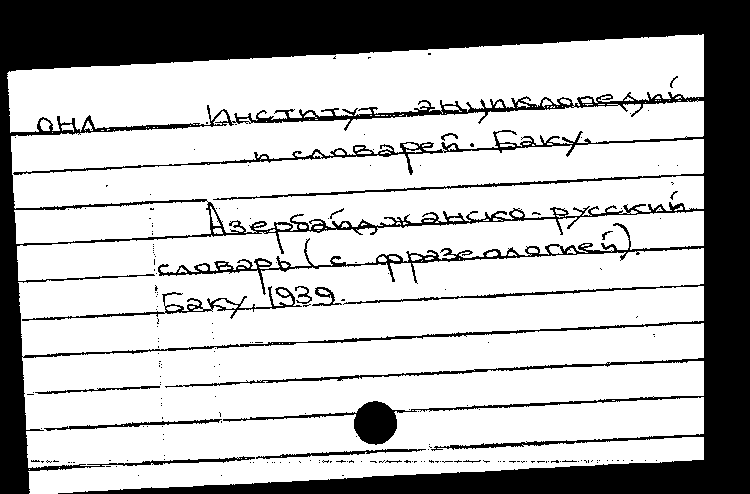 ОНЛ Институт энциклопедий
и словарей. Баку.
Азербайджанско-русский
словарь (с фразеологией).
Баку, 1939.